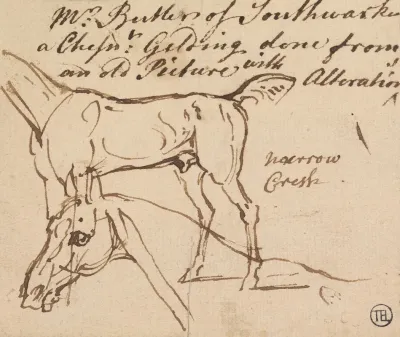 Mr. Butler of Southwark
a Chesnt. Gelding done from
an old Picture with Alterations
narrow
Crest
TEL